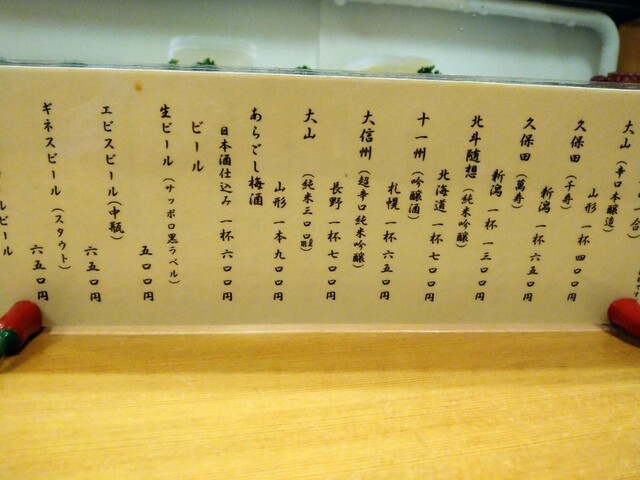 大山（辛口本醸造）
山形 一杯 四〇〇円
久保田（千寿）
新潟 一杯 六五〇円
久保田（萬寿）
新潟 一杯 一三〇〇円
北斗随想（純米吟醸）
北海道 一杯 七〇〇円
十一州（吟醸酒）
札幌 一杯 六五〇円
大信州（超辛口純米吟醸）
長野 一杯 七〇〇円
大山（純米三〇〇㎖）
山形 一本 九〇〇円
あらごし梅酒
日本酒仕込み 一杯 六〇〇円
ビール
生ビール（サッポロ黒ラベル）
五〇〇円
エビスビール（中瓶）
六五〇円
ギネスビール（スタウト）
六五〇円
ルビール